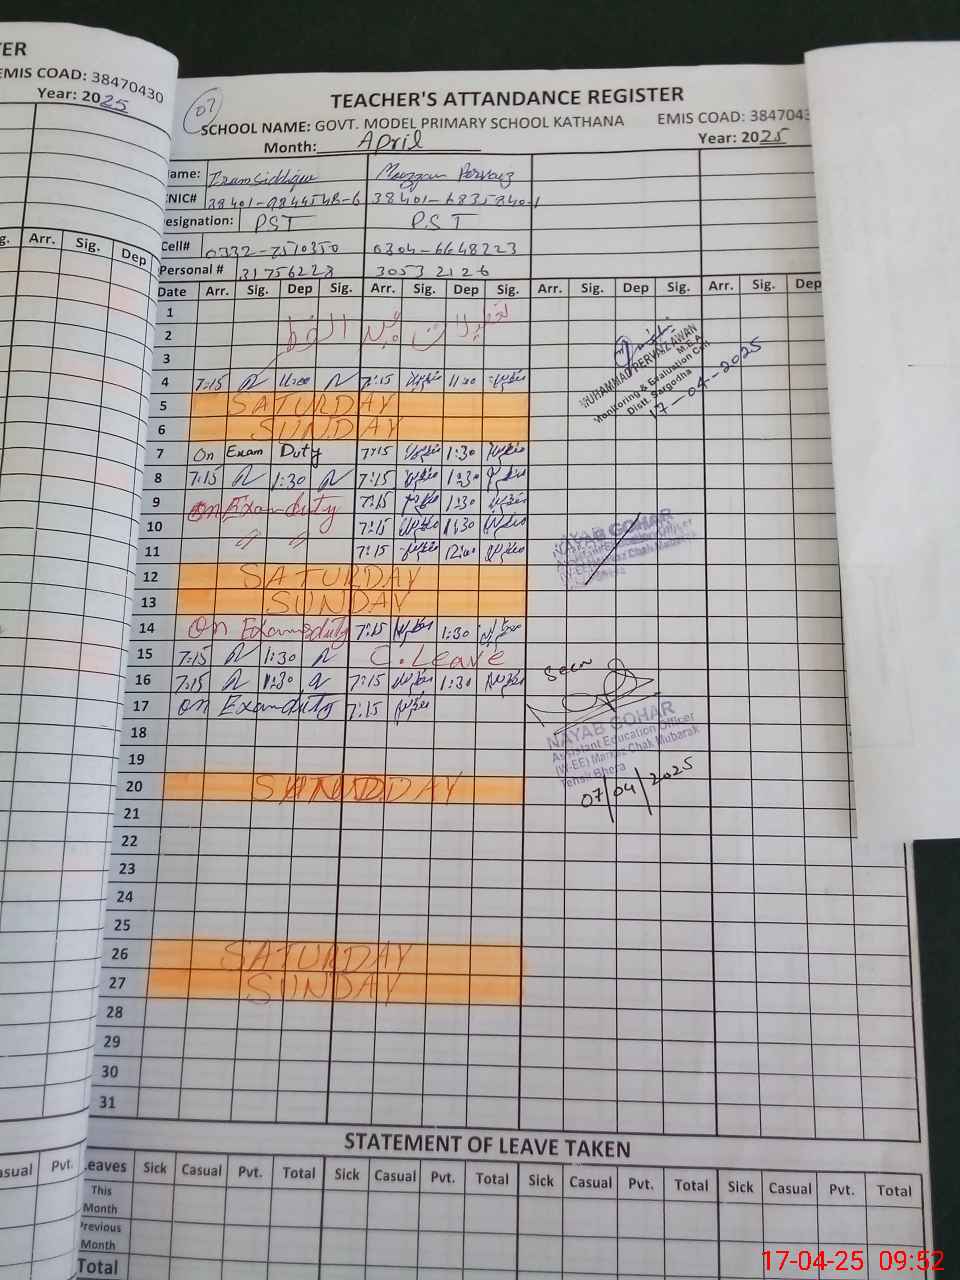 ER
EMIS COAD: 38470430
Year: 2025
Arr. Sig. Dep
07
TEACHER'S ATTANDANCE REGISTER
SCHOOL NAME: GOVT. MODEL PRIMARY SCHOOL KATHANA EMIS COAD: 3847043
Month: April Year: 2025
ame: Iram Siddique
CNIC# 38401-6835840-1
esignation: PST PST
Cell# 0332-7510350 0304-6648223
Personal # 31756228 30532126
Date Arr. Sig. Dep Sig. Arr. Sig. Dep Sig. Arr. Sig. Dep Sig. Arr. Sig. Dep
1
2 تعطیلات عید الفطر
3
4 7:15 11:00 7:15 11:00
MUHAMMAD PERVAIZ AWAN
M.E.A
Monitoring & Evaluation Cell
Distt. Sargodha
17-04-2025
5 SATURDAY
6 SUNDAY
7 On Exam Duty 7:15 1:30
8 7:15 1:30 7:15 1:30
9 On Exam duty 7:15 1:30
10 〃 〃 7:15 1:30
11 7:15 12:00
NAYAB GOHAR
12 SATURDAY
13 SUNDAY
14 On Exam duty 7:15 1:30
15 7:15 1:30 C. Leave
16 7:15 1:30 7:15 1:30
17 On Exam duty 7:15
Seen
NAYAB GOHAR
Assistant Education Officer
(W-EE) Markaz Chak Mubarak
Tehsil Bhera
07/04/2025
18
19
20
21
22
23
24
25
26 SATURDAY
27 SUNDAY
28
29
30
31
STATEMENT OF LEAVE TAKEN
asual Pvt.
Leaves Sick Casual Pvt. Total Sick Casual Pvt. Total Sick Casual Pvt. Total Sick Casual Pvt. Total
This
Month
Previous
Month
Total
17-04-25 09:52